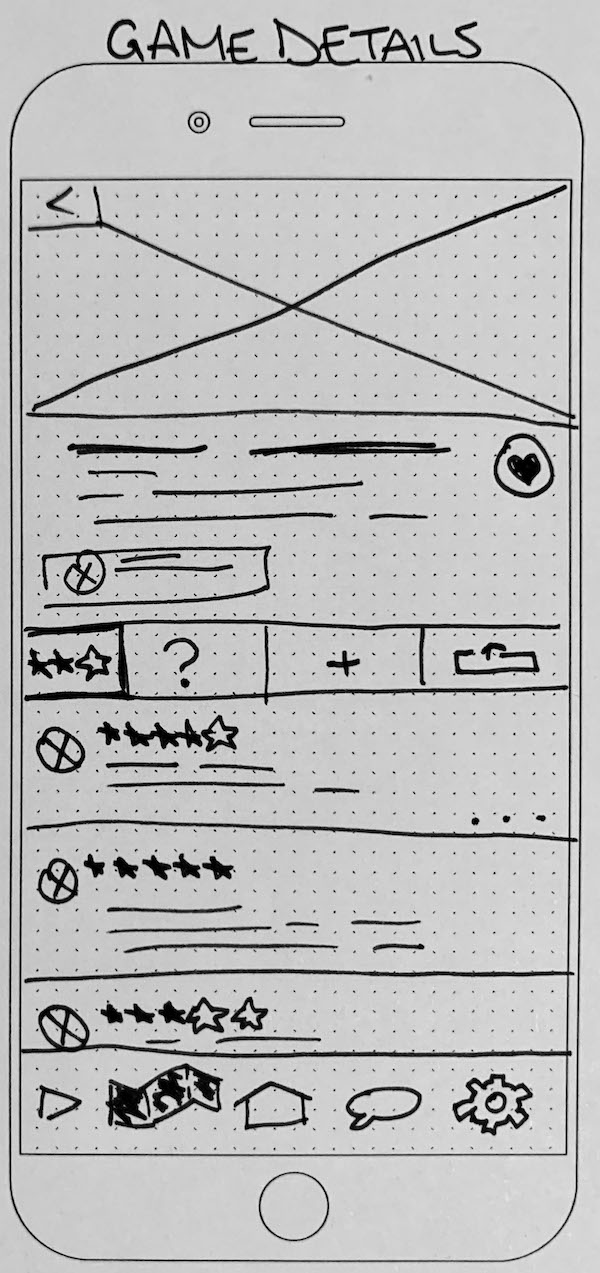 GAME DETAILS
<
?
+
...